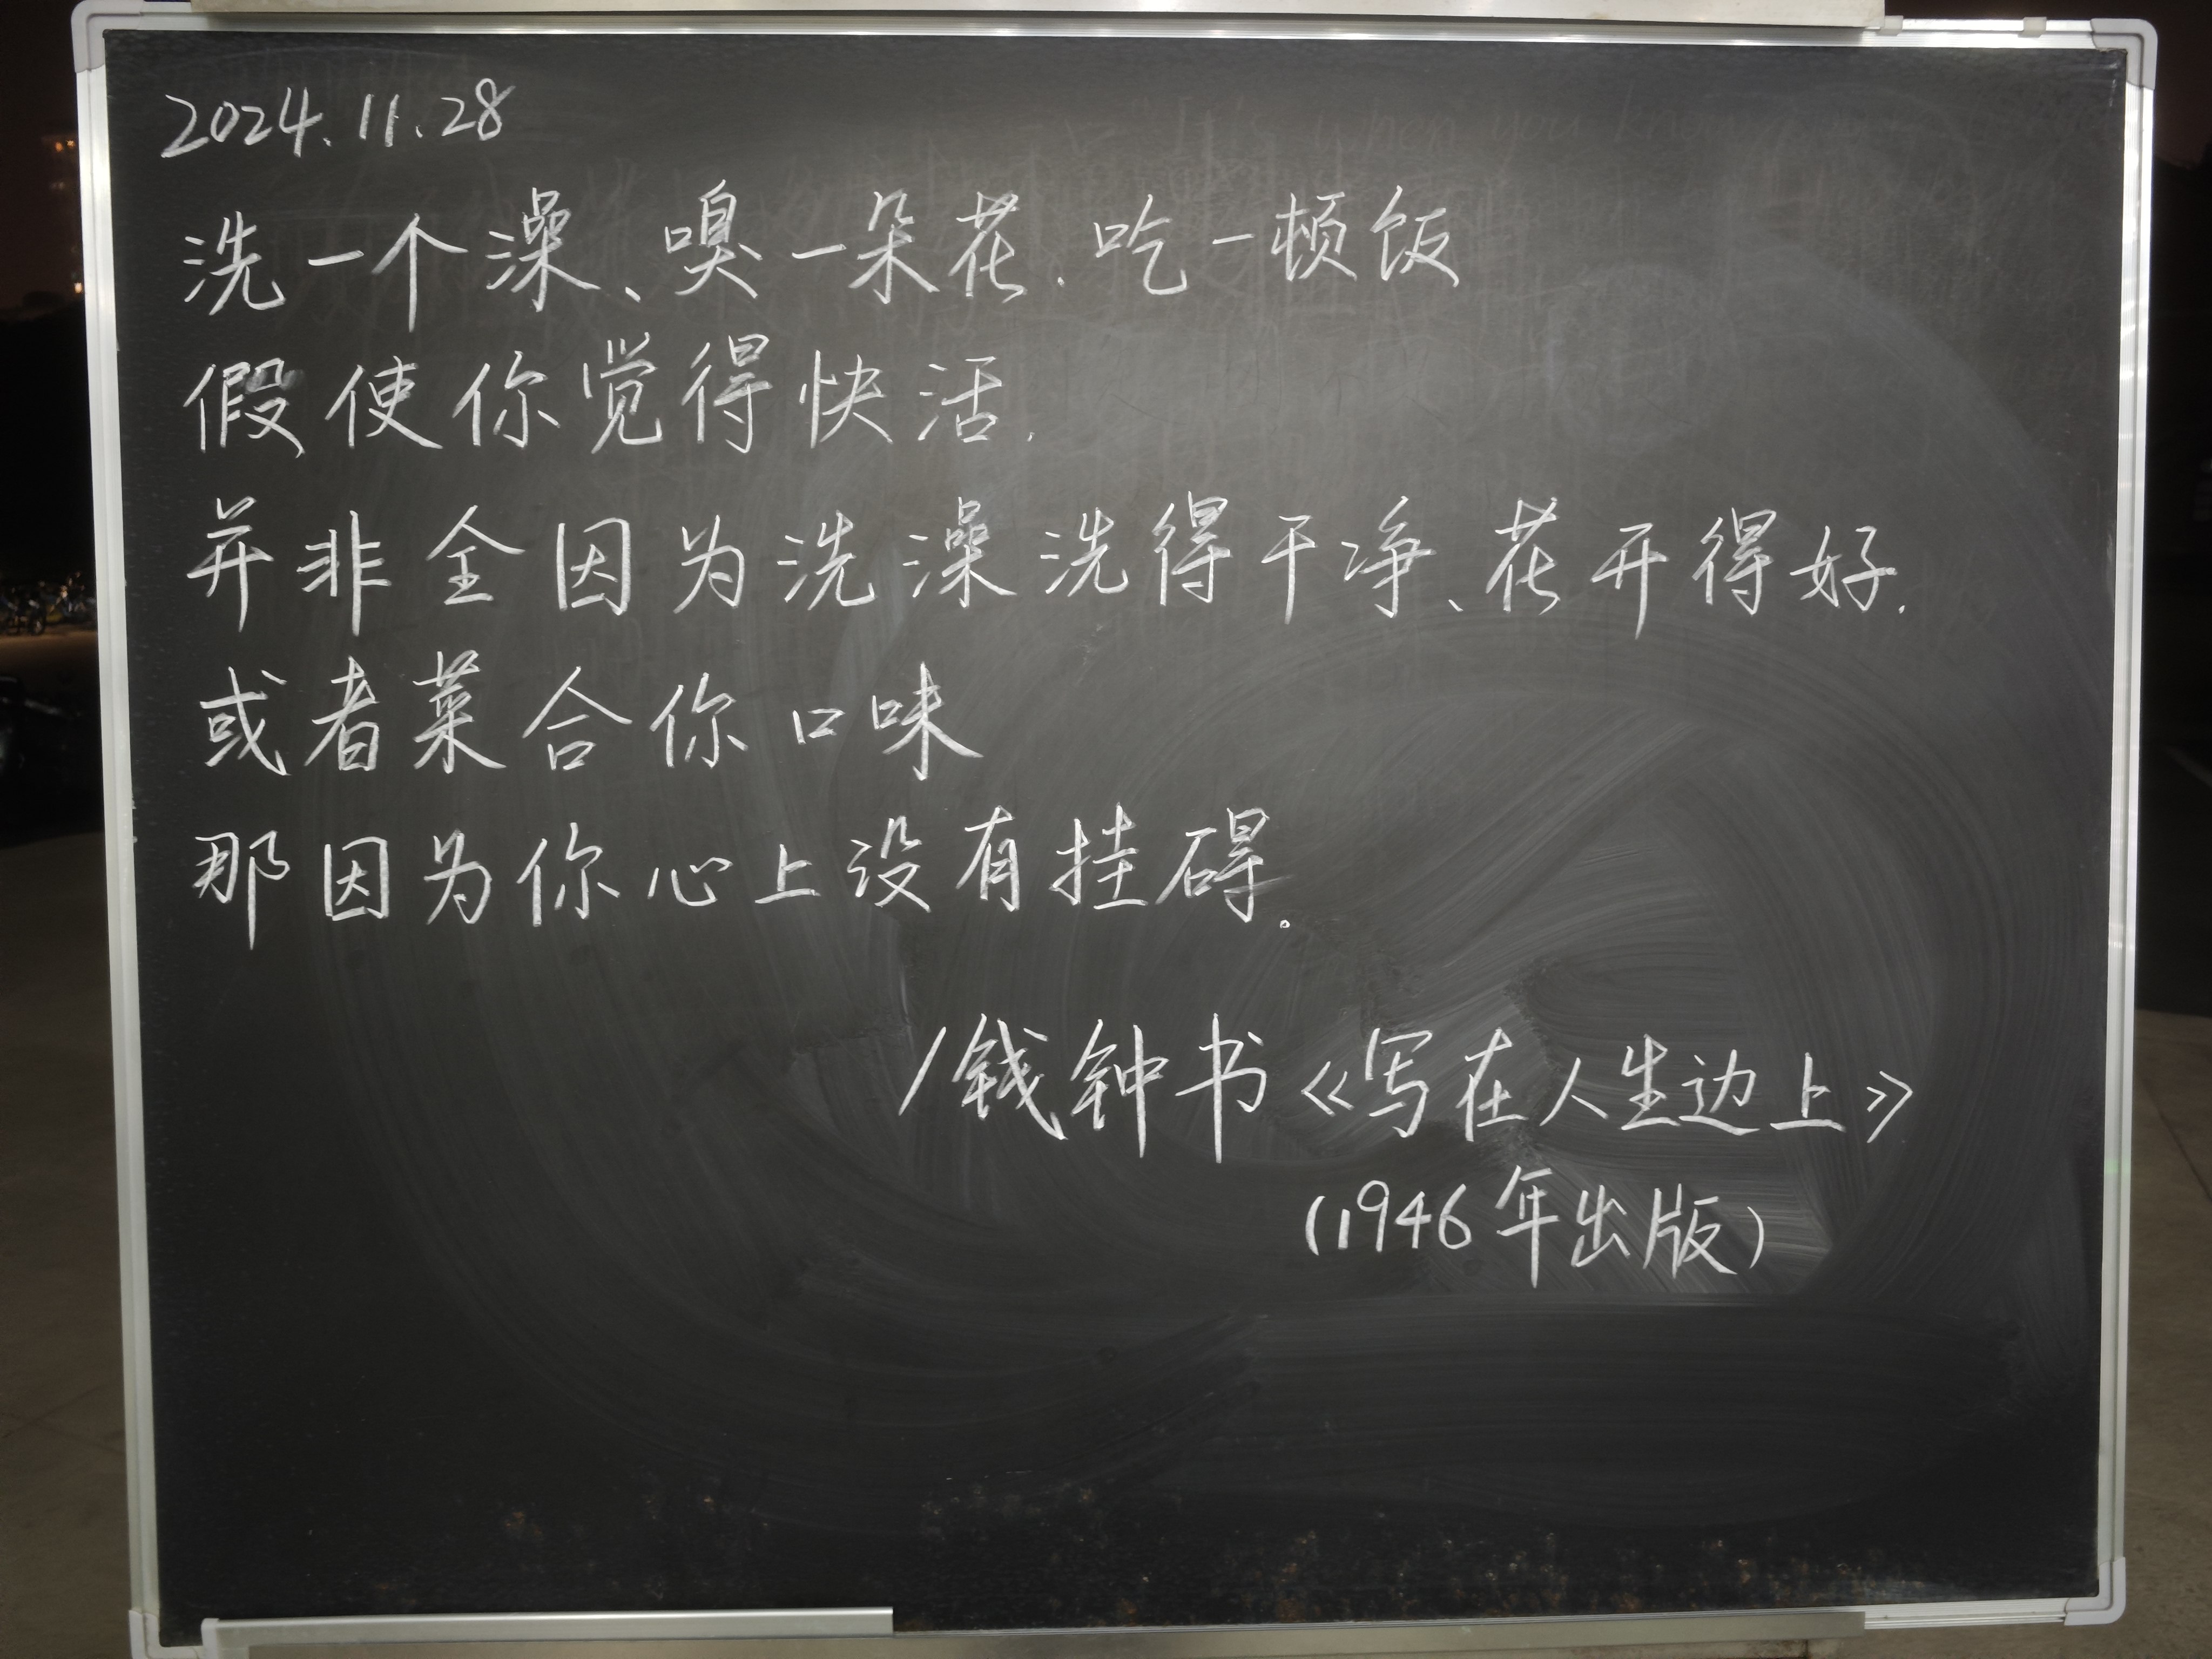 2024.11.28
洗一个澡、嗅一朵花.吃一顿饭
假使你觉得快活.
并非全因为洗澡洗得干净、花开得好.
或者菜合你口味
那因为你心上没有挂碍。
/钱钟书《写在人生边上》
(1946年出版)